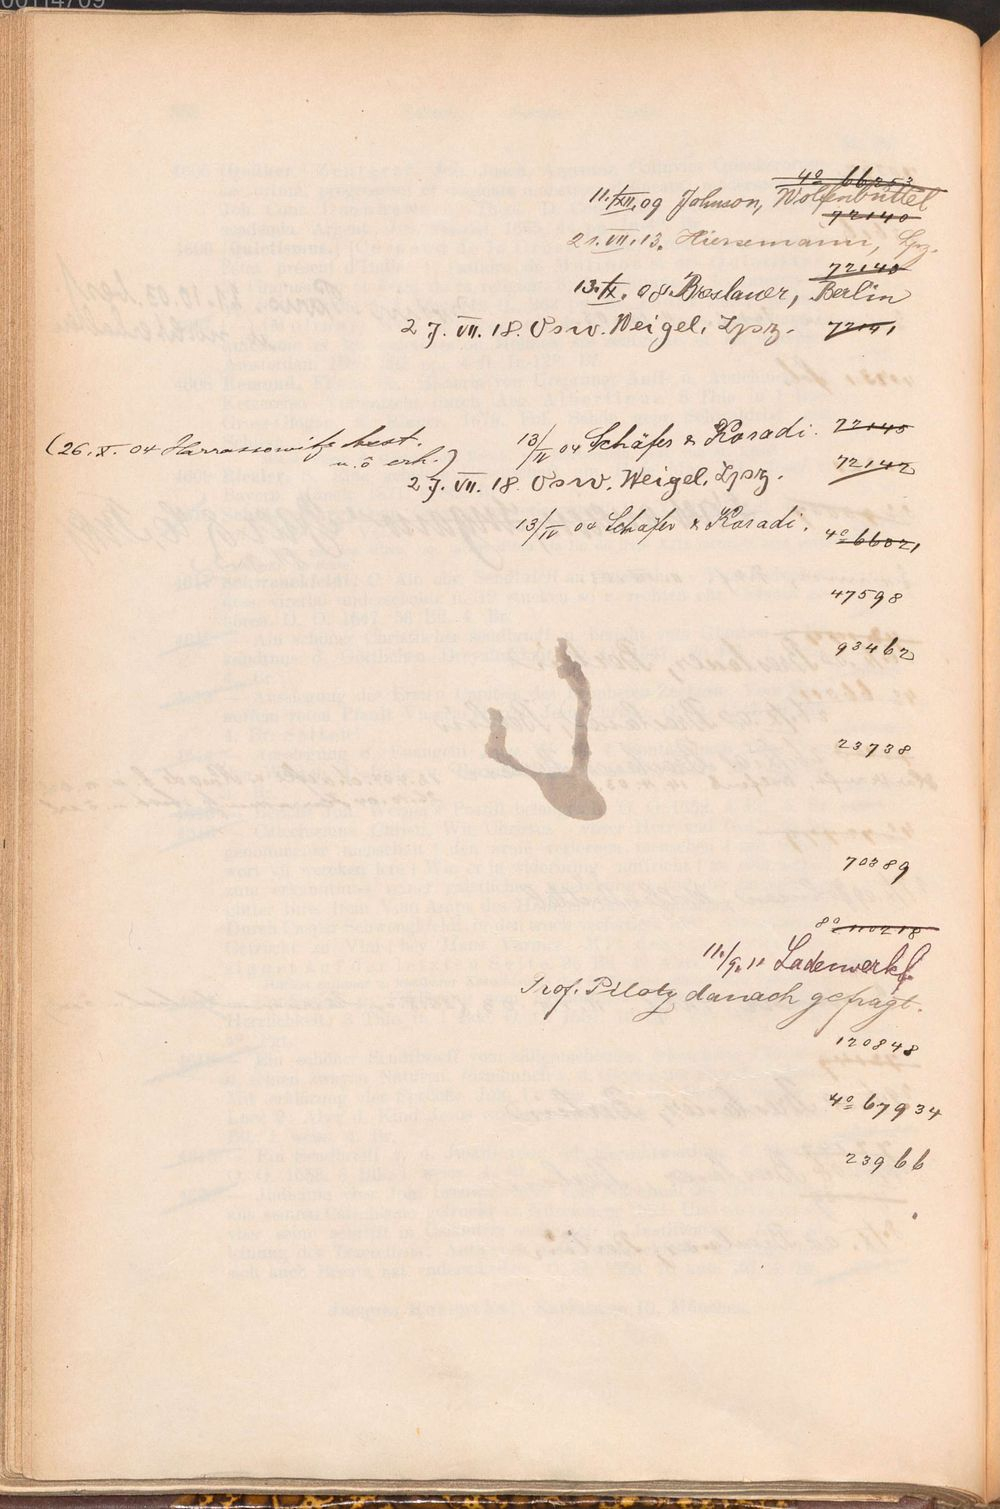 00114709
4° 66253
11./XII.09 Johnson, Wolfenbüttel
72140
21.VII.13. Hiersemann, Lpz.
72140
13./IX.08. Breslauer, Berlin
27.VII.18. Osw. Weigel, Lpz. 72141
13/IV 04 Schäfer & Koradi. 72145
(26.X.04 Harrassowitz best.
u. ō erh.)
72142
27.VII.18. Osw. Weigel, Lpz.
13/IV 04 Schäfer & Koradi. 4° 66021
47598
93462
23738
70389
8° 110218
11./9.11 Ladenverkf.
Prof. Piloty danach gefragt.
120848
4° 67934
23966